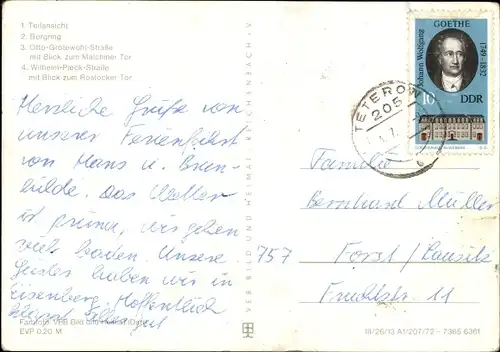 1. Teilansicht
2. Bergring
3. Otto-Grotewohl-Straße
mit Blick zum Malchiner Tor
4. Wilhelm-Pieck-Straße
mit Blick zum Rostocker Tor
Herzliche Grüße von
unserer Ferienfahrt
von Hans u. Brun-
hilde. Das Wetter
ist prima, wir gehen
viel baden. Unsere
haben wir in
Eisenberg. Hoffentlich
klappt alles gut
Farbfoto: VEB Bild und Heimat
EVP 0,20 M
VEB BILD UND HEIMAT REICHENBACH · V
Johann Wolfgang
GOETHE
1749-1832
10
DDR
TETEROW
205
Familie
Bernhard Müller
757 Forst/Lausitz
Fruchtstr. 11
III/26/13 A1/207/72 - 7365 6361